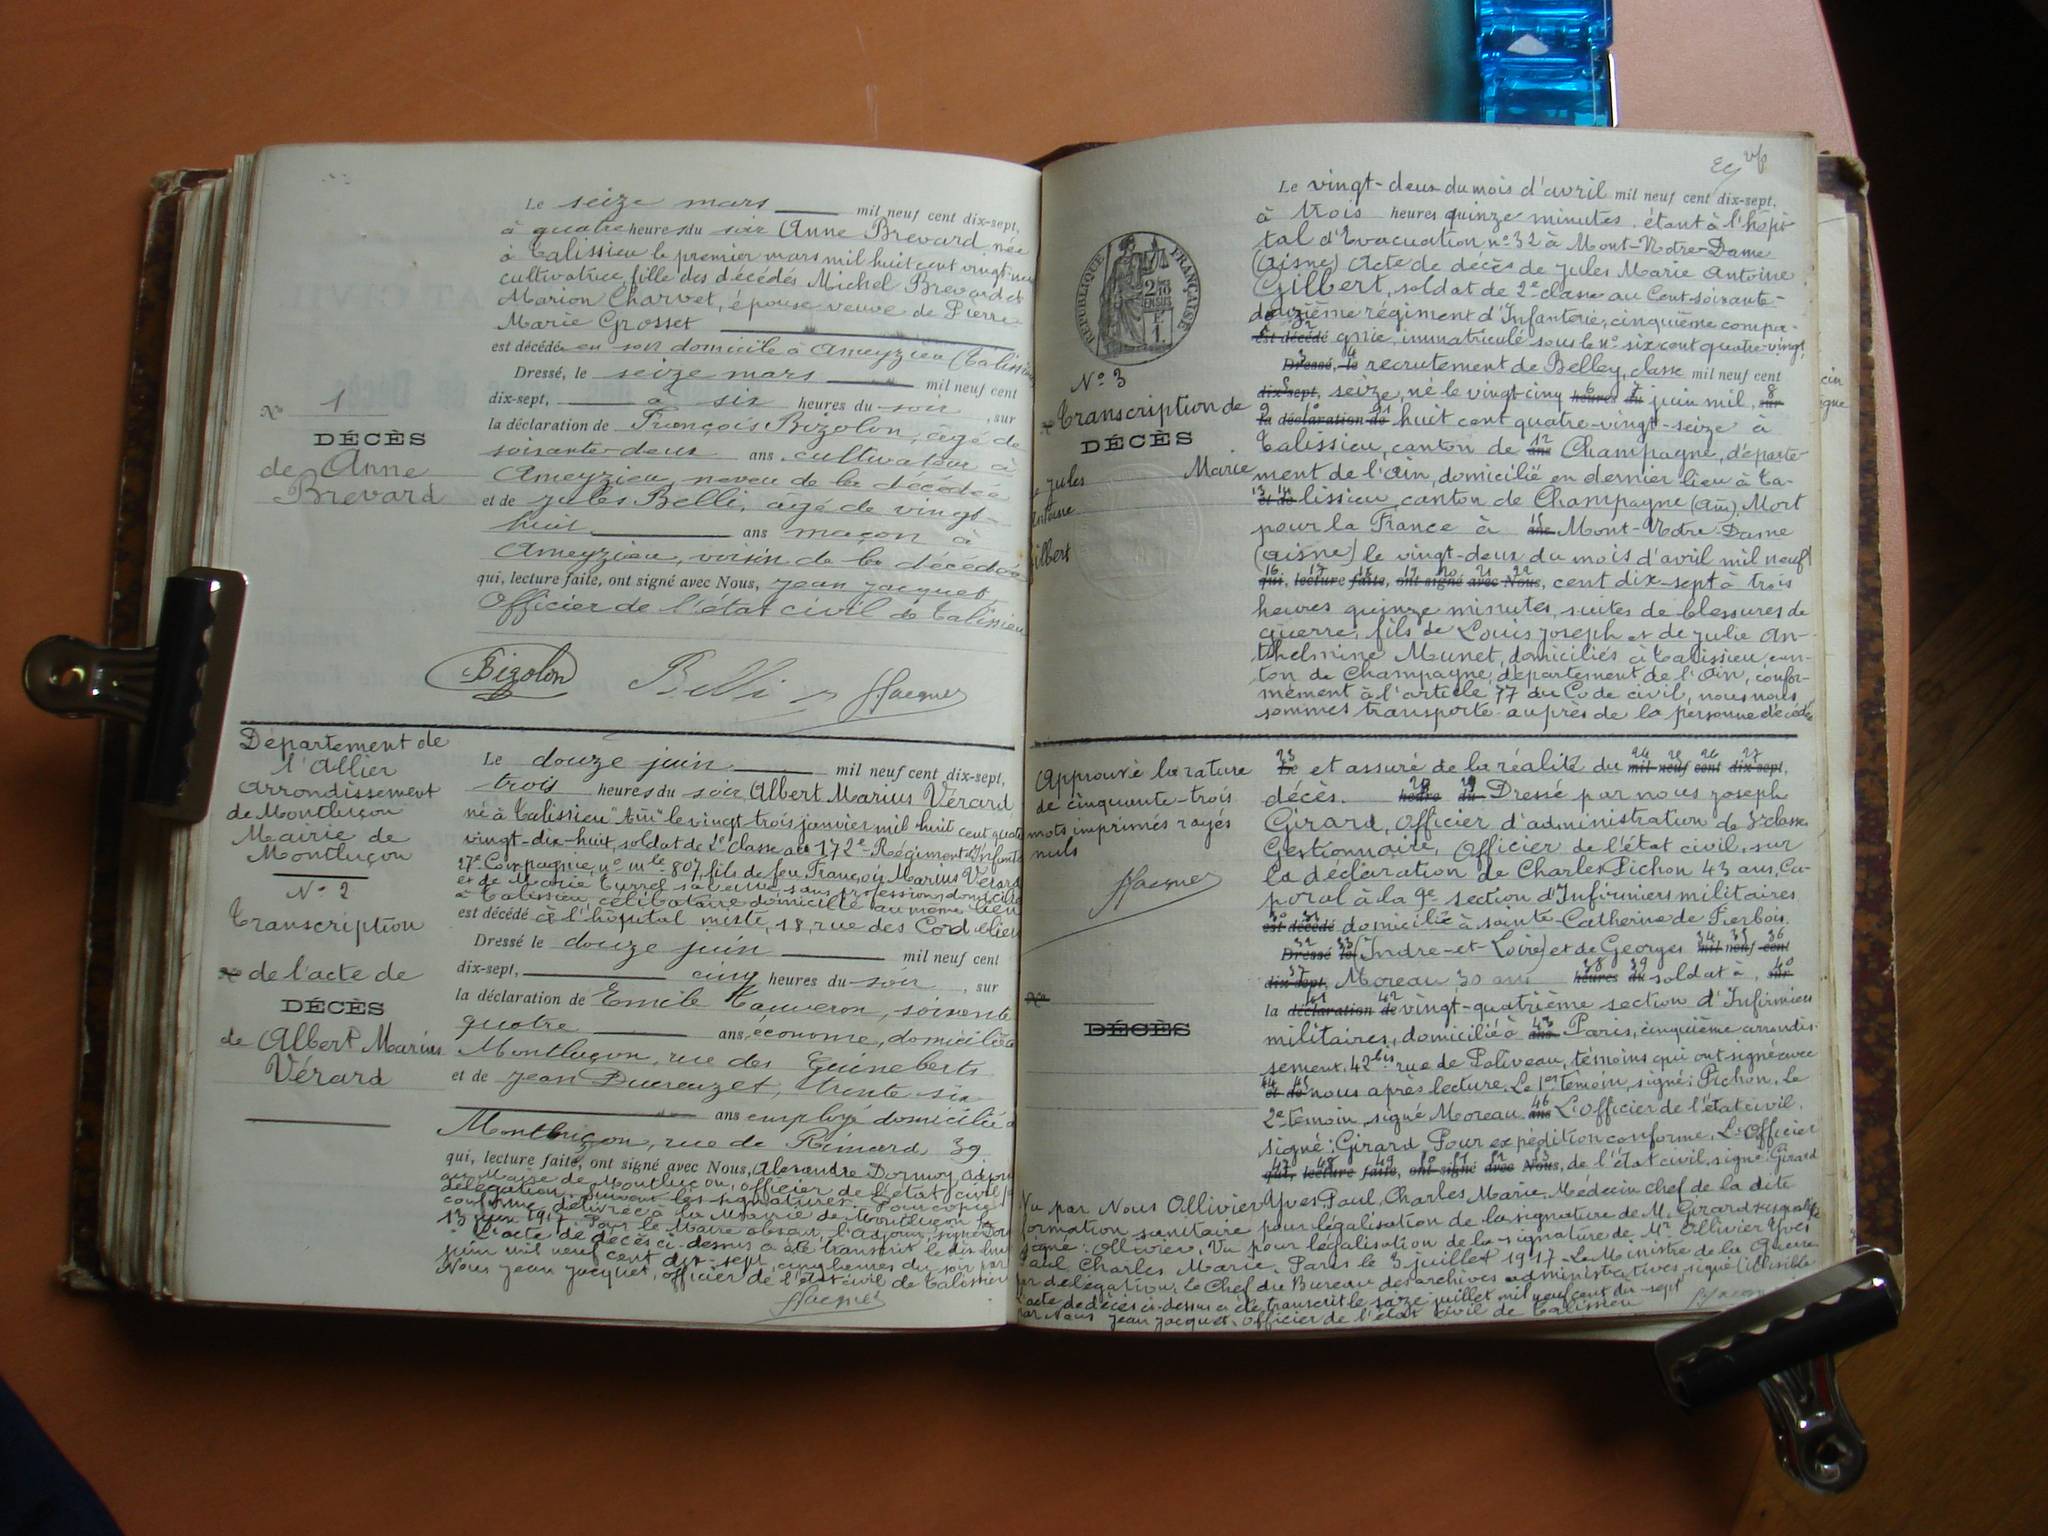 Le seize mars mil neuf cent dix-sept,
à quatre heures du soir Anne Brevard née
à Talissieu le premier mars mil huit cent vingt-neuf
cultivatrice, fille des décédés Michel Brevard et
Marion Charvet, épouse veuve de Pierre
Marie Grosset
est décédée en son domicile à Ameyzieu (Talissieu
Dressé, le seize mars mil neuf cent
dix-sept, à six heures du soir, sur
la déclaration de François Bizolon, âgé de
soixante-deux ans, cultivateur à
Ameyzieu, neveu de la décédée
et de Jules Belli, âgé de vingt-
huit ans maçon à
Ameyzieu, voisin de la décédée
qui, lecture faite, ont signé avec Nous, Jean Jacquet,
Officier de l'état civil de Talissieu
No 1
DÉCÈS
de Anne
Brevard
Bizolon Belli J Jacquet
Département de
l'Allier
Arrondissement
de Montluçon
Mairie de
Montluçon
No 2
Transcription
de l'acte de
DÉCÈS
de Albert Marius
Vérard
Le douze juin mil neuf cent dix-sept,
trois heures du soir, Albert Marius Vérard
né à Talissieu "Ain" le vingt trois janvier mil huit cent quatre
vingt-dix-huit, soldat de 2e classe au 172e Régiment d'Infanterie
27e Compagnie, no mle 807, fils de feu François Marius Vérard
et de Marie Burrel sa veuve, sans profession, domiciliée
à Talissieu, célibataire domicilié au même lieu
est décédé à l'hôpital mixte, 18, rue des Cordeliers
Dressé le douze juin mil neuf cent
dix-sept, cinq heures du soir, sur
la déclaration de Emile Hauveron, soixante
quatre ans, économe, domicilié à
Montluçon, rue des Guineberts
et de Jean Ducreuzet, trente six
ans employé domicilié à
Montluçon, rue de Rimard 39
qui, lecture faite, ont signé avec Nous, Alexandre Dormoy adjoint
au Maire de Montluçon, officier de l'état civil par
délégation. Suivent les signatures. Pour copie
conforme délivrée à la Mairie de Montluçon le
13 juin 1917. Pour le Maire absent, l'Adjoint, signé Dormoy
L'acte de décès ci-dessus a été transcrit le dix huit
juin mil neuf cent dix-sept, cinq heures du soir par
Nous Jean Jacquet, officier de l'état civil de Talissieu
J Jacquet
RÉPUBLIQUE FRANÇAISE
No 3
Transcription de
DÉCÈS
Jules Marie
Antoine
Gilbert
Le vingt-deux du mois d'avril mil neuf cent dix-sept,
à trois heures quinze minutes, étant à l'hôpi-
tal d'Evacuation no 32 à Mont-Notre-Dame
(Aisne) Acte de décès de Jules Marie Antoine
Gilbert, soldat de 2e classe au Cent-soixante-
deuxième régiment d'Infanterie, cinquième compa-
1 2 est décédé gnie, immatriculé sous le no six cent quatre-vingt
3 4 Dressé, le recrutement de Belley, classe mil neuf cent
5 dix-sept, seize, né le vingt-cinq 6 7 heures du juin mil, 8 sur
9 10 11 la déclaration de huit cent quatre-vingt-seize à
Talissieu, canton de 12 ans Champagne, départe-
ment de l'Ain, domicilié en dernier lieu à Ta-
13 14 et de lissieu, canton de Champagne (Ain), Mort
pour la France à 15 ans Mont-Notre-Dame
(Aisne) le vingt-deux du mois d'avril mil neuf
16 17 18 19 20 21 22 qui, lecture faite, ont signé avec Nous, cent dix-sept à trois
heures quinze minutes, suites de blessures de
guerre, fils de Louis Joseph et de Julie An-
thelmine Munet, domiciliés à Talissieu, can-
ton de Champagne, département de l'Ain, confor-
mément à l'article 77 du Code civil, nous nous
sommes transporté auprès de la personne décédée
Approuvé la rature
de cinquante-trois
mots imprimés rayés
nuls
J Jacquet
No
DÉCÈS
23 Le et assuré de la réalité du 24 25 26 27 mil neuf cent dix-sept,
décès. 28 29 heures du Dressé par nous Joseph
Girard, Officier d'administration de 3e classe
Gestionnaire, Officier de l'état civil, sur
la déclaration de Charles Pichon 43 ans, Ca-
poral à la 9e section d'Infirmiers militaires
30 31 est décédé domicilié à sainte-Catherine de Fierbois
32 33 Dressé le (Indre-et-Loire) et de Georges 34 35 36 mil neuf cent
37 dix-sept, Moreau 30 ans 38 39 heures du soldat à, 40 sur
la 41 42 déclaration de vingt-quatrième section d'Infirmiers
militaires, domicilié à 43 ans Paris, cinquième arrondis-
sement, 42bis rue de Poliveau, témoins qui ont signé avec
44 45 et de nous après lecture. Le 1er témoin, signé: Pichon. Le
2e témoin, signé Moreau. 46 ans L'Officier de l'état civil,
signé: Girard Pour expédition conforme, L'Officier
47 48 49 50 51 52 53 qui, lecture faite, ont signé avec Nous, de l'état civil, signé: Girard
Vu par Nous Ollivier Yves Paul, Charles Marie, Médecin chef de la dite
formation sanitaire pour légalisation de la signature de M. Girard
signé: Ollivier. Vu pour légalisation de la signature de Mr Ollivier Yves
Paul, Charles Marie. Paris le 3 juillet 1917. Le Ministre de la Guerre
par délégation, le Chef du Bureau des archives administratives signé (illisible
L'acte de décès ci-dessus a été transcrit le seize juillet mil neuf cent dix-sept
par Nous Jean Jacquet, Officier de l'état civil de Talissieu